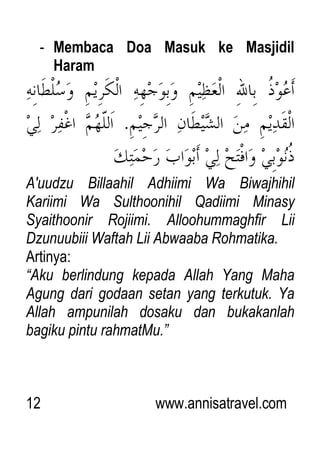 - Membaca Doa Masuk ke Masjidil
Haram
أَعُوْذُ بِاللهِ الْعَظِيْمِ وَبِوَجْهِهِ الْكَرِيْمِ وَسُلْطَانِهِ
الْقَدِيْمِ مِنَ الشَّيْطَانِ الرَّجِيْمِ. اَللّٰهُمَّ اغْفِرْ لِيْ
ذُنُوْبِيْ وَافْتَحْ لِيْ أَبْوَابَ رَحْمَتِكَ
A'uudzu Billaahil Adhiimi Wa Biwajhihil
Kariimi Wa Sulthoonihil Qadiimi Minasy
Syaithoonir Rojiimi. Alloohummaghfir Lii
Dzunuubiii Waftah Lii Abwaaba Rohmatika.
Artinya:
“Aku berlindung kepada Allah Yang Maha
Agung dari godaan setan yang terkutuk. Ya
Allah ampunilah dosaku dan bukakanlah
bagiku pintu rahmatMu.”
12 www.annisatravel.com